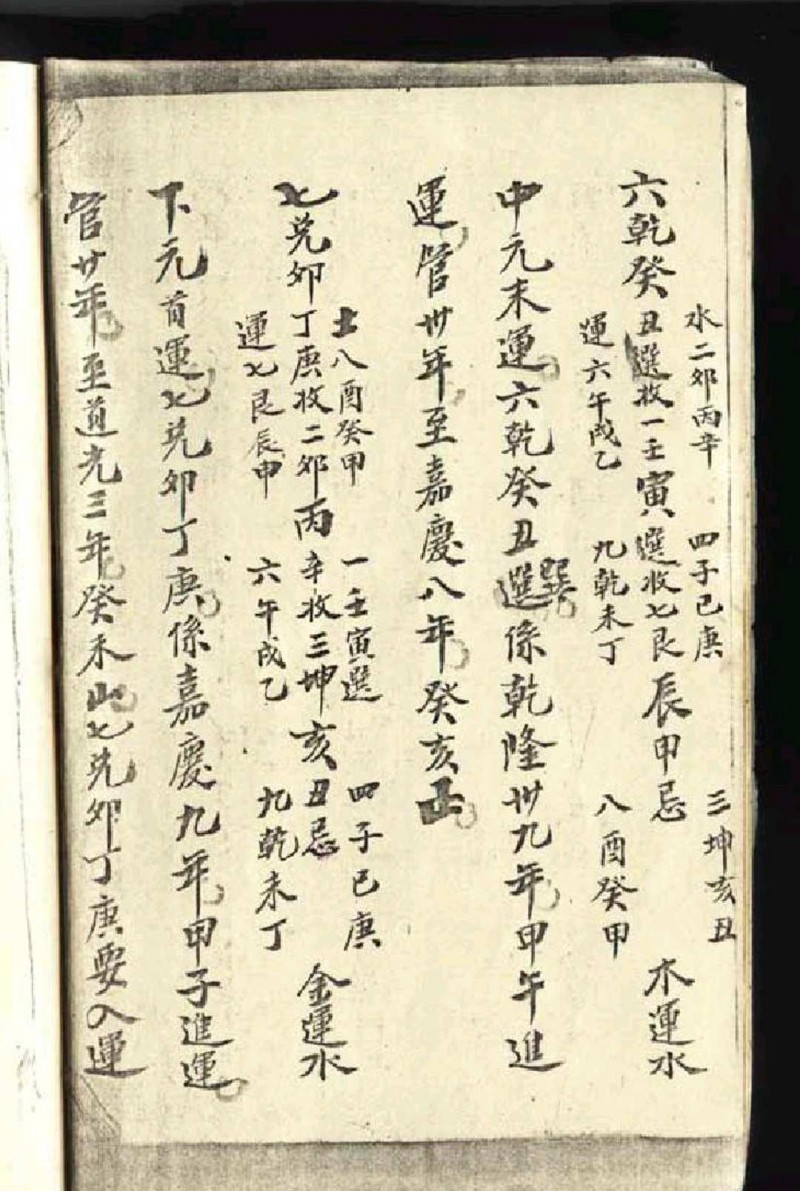 水二卯丙辛 四子巳庚 三坤亥丑
六乾癸丑選收一壬寅選收七艮辰甲忌 木運水
運六午戌乙 九乾未丁 八酉癸甲
中元末運六乾癸丑選巽係乾隆卅九年甲午進
運管卅年至嘉慶八年癸亥止
土八酉癸甲 一壬寅選 四子巳庚
七兑卯丁庚收二卯丙辛收三坤亥丑忌 金運水
運七艮辰申 六午戌乙 九乾未丁
下元首運七兑卯丁庚係嘉慶九年甲子進運
管廿年至道光三年癸未止七兑卯丁庚要入運